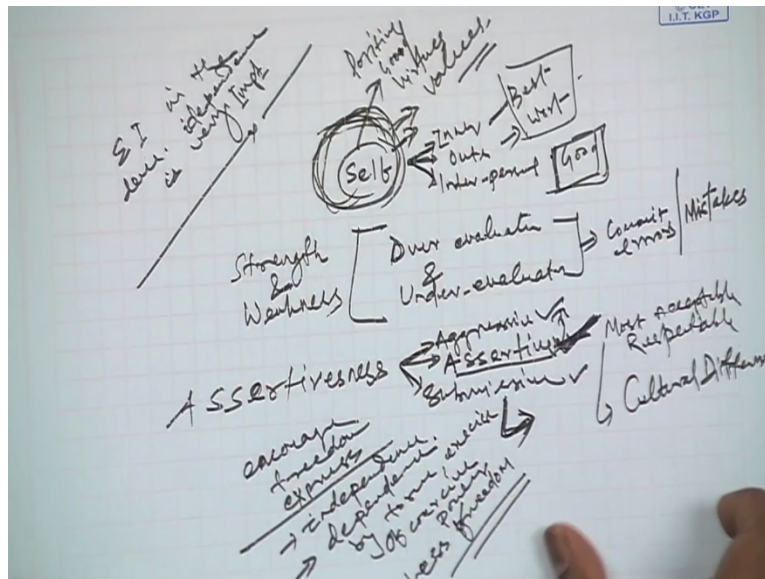 I.I.T. KGP
EI in the
deve. independence
is very Impt
Positive
Good
Virtues
Values.
Self
Inner
Outer
Inter-personal
Best
West
Good
Strength
&
Weakness
Over evaluation
&
Under-evaluation
Commit
errors
Mistakes
Assertiveness
Aggressive
Assertive
Submissive
Most Acceptable
Respectable
Cultural Differen
encourage
freedom
express
→ independence.
→ dependence
by to sue exercise
of coercive
power
ness freedom